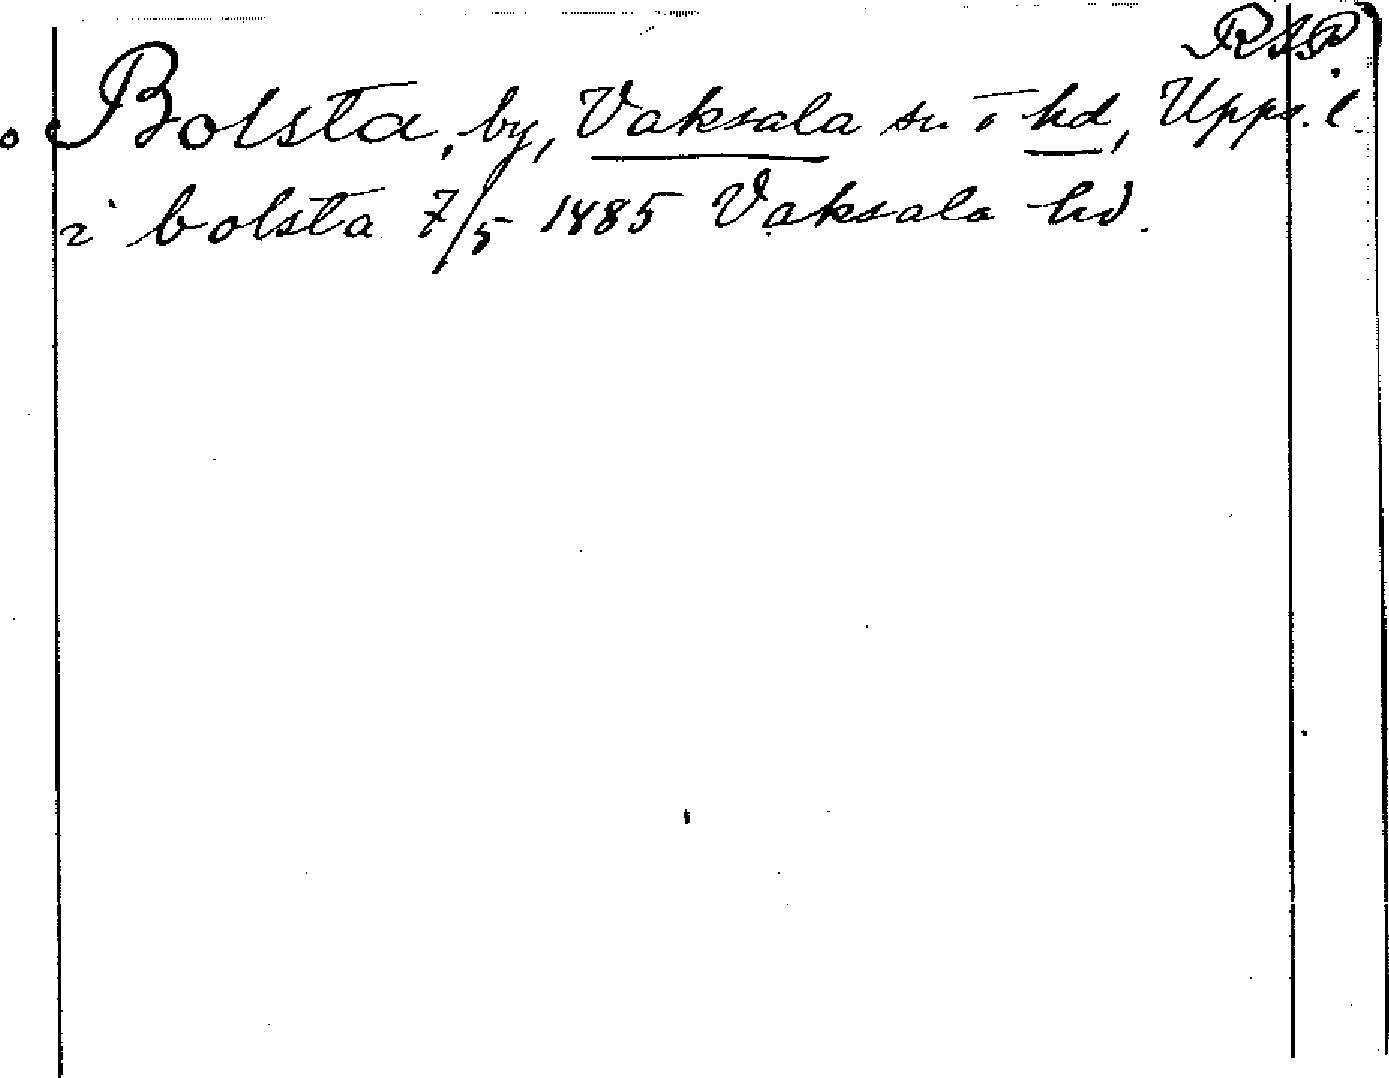 RAP.
Bolsta, by, Vaksala sn o hd, Upps. l.
i bolsta 7/5 1485 Vaksala hd.